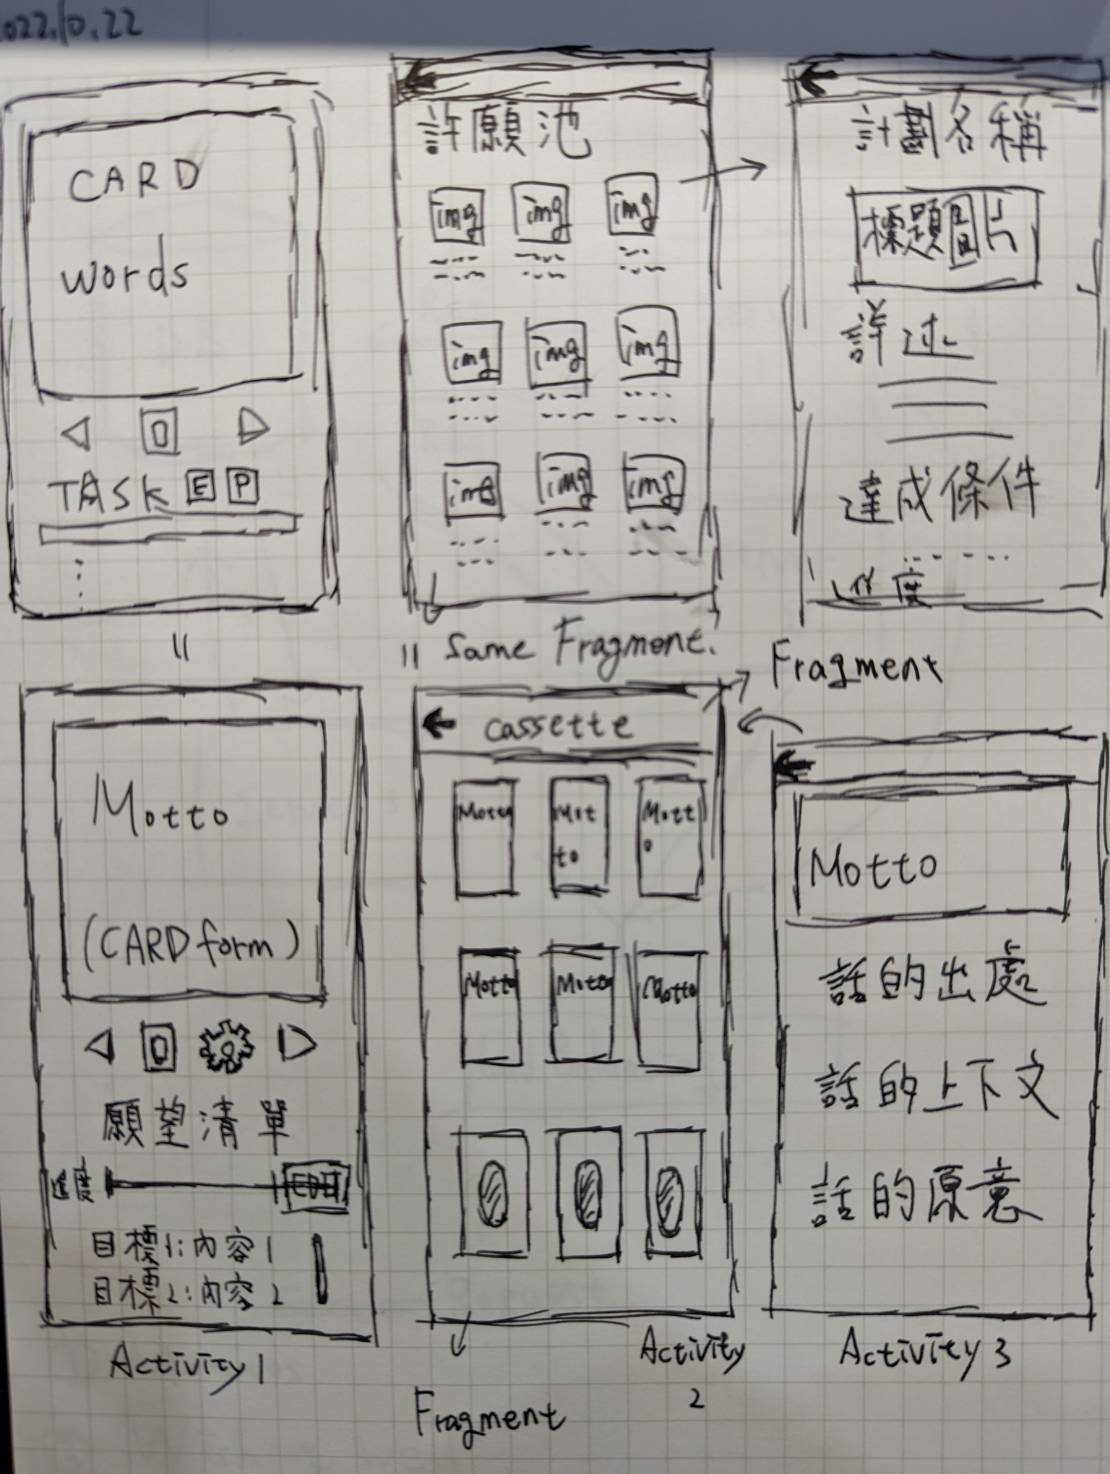 2022.10.22
CARD
words
O
TASK E P
許願池
img img img
img img img
img img img
計劃名稱
標題圖片
詳述
達成條件
進度
Same Fragment.
Fragment
Motto
(CARD form)
O
願望清單
進度 EDIT
目標1:內容1
目標2:內容2
Activity 1
cassette
Motto Motto Motto
Motto Motto Motto
Activity
2
Fragment
Motto
話的出處
話的上下文
話的原意
Activity 3